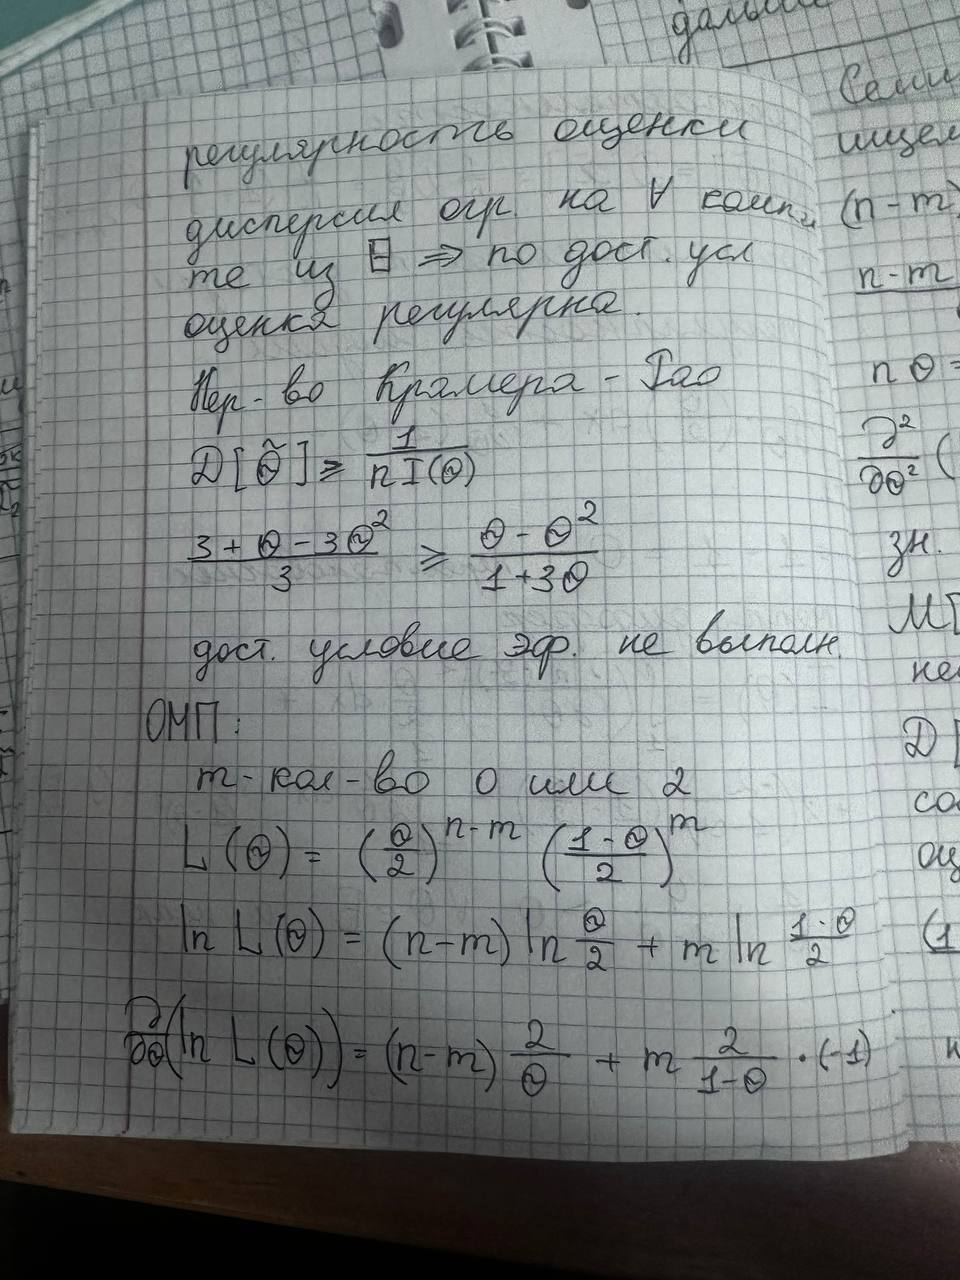 дальше
регулярность оценки
дисперсия огр. на ∀ компак
те из Θ ⇒ по дост. усл
оценка регулярна.
Нер-во Крамера - Рао
Д[θ̃] ⩾ 1/(n I(θ))
(3 + θ - 3θ²)/3 ⩾ (θ - θ²)/(1+3θ)
дост. условие эф. не выполн.
ОМП:
m - кол-во 0 или 2
L(θ) = (θ/2)^(n-m) ((1-θ)/2)^m
ln L(θ) = (n-m) ln θ/2 + m ln (1-θ)/2
∂/∂θ(ln L(θ)) = (n-m) 2/θ + m 2/(1-θ) · (-1)
(n-m)
n-m
nθ =
∂²/∂θ² (
зн.
М[
Д[
(1